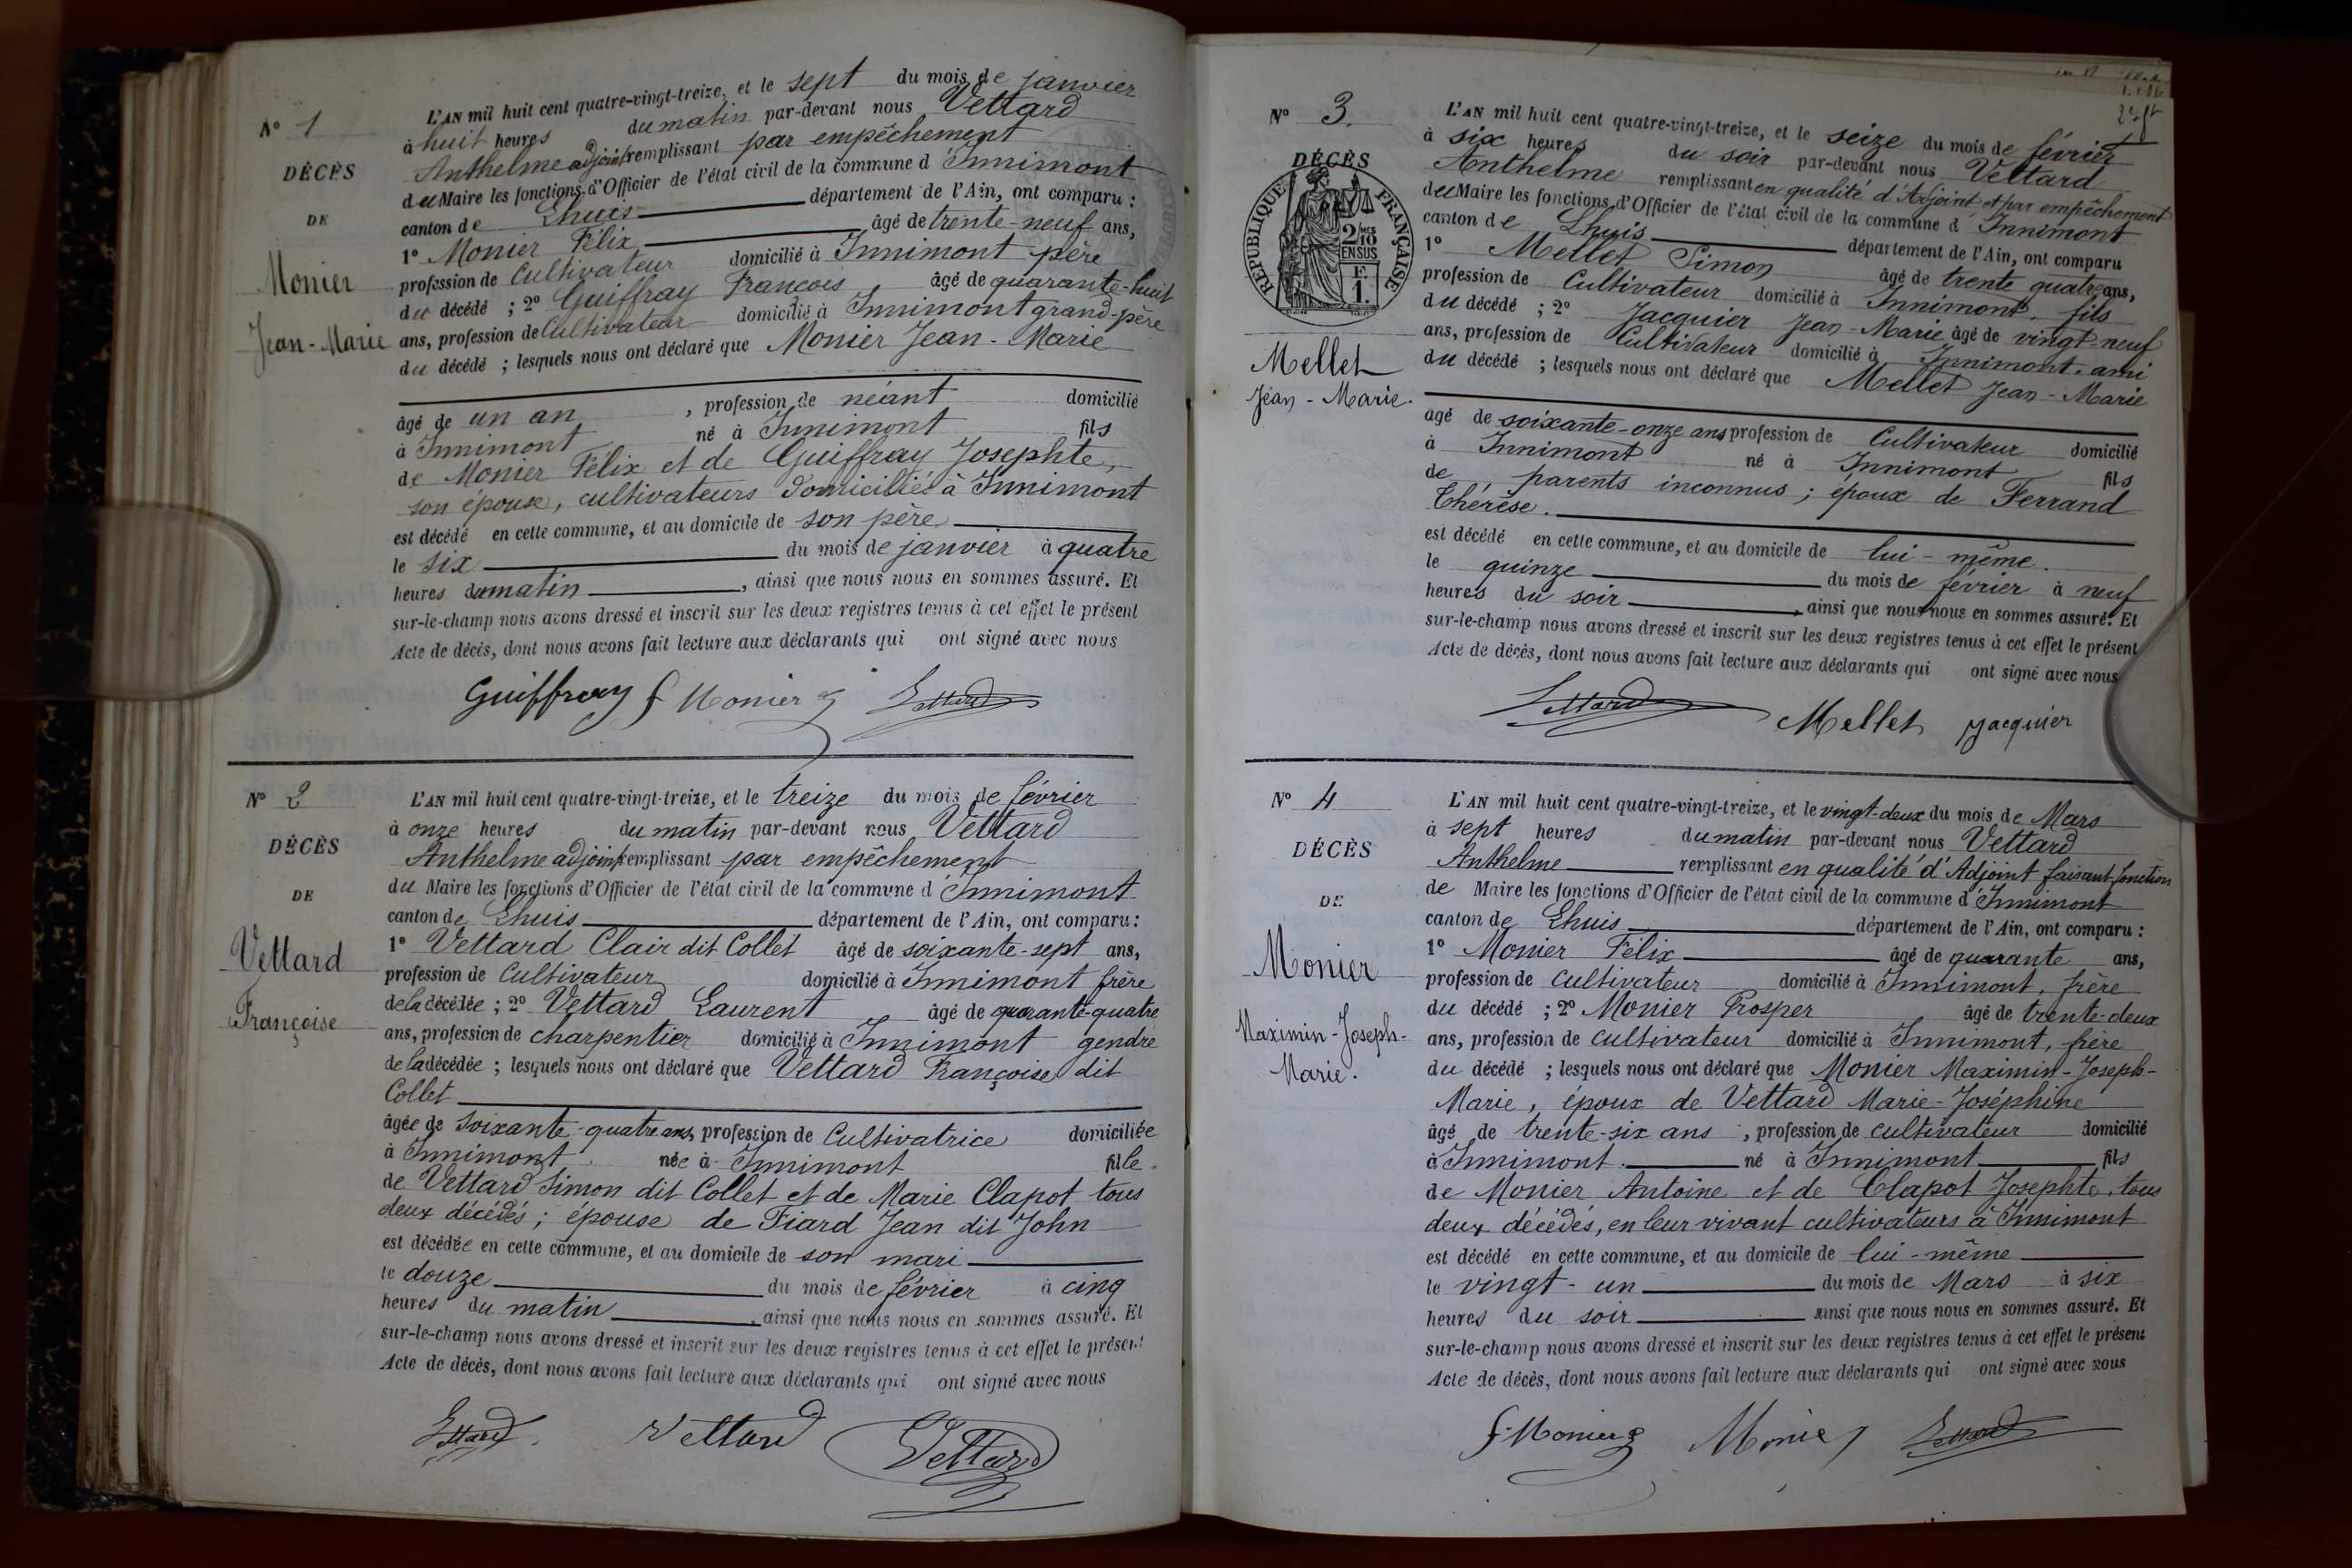 N° 1
DÉCÈS
DE
Monier
Jean-Marie
L'AN mil huit cent quatre-vingt-treize, et le sept du mois de janvier
à huit heures du matin par-devant nous Vettard
Anthelme adjoint remplissant par empêchement
du Maire les fonctions d'Officier de l'état civil de la commune d'Innimont
canton de Lhuis département de l'Ain, ont comparu :
1° Monier Félix âgé de trente-neuf ans,
profession de Cultivateur domicilié à Innimont père
du décédé ; 2° Guiffray François âgé de quarante-huit
ans, profession de Cultivateur domicilié à Innimont grand-père
du décédé ; lesquels nous ont déclaré que Monier Jean-Marie
âgé de un an , profession de néant domicilié
à Innimont né à Innimont fils
de Monier Félix et de Guiffray Josephte,
son épouse, cultivateurs domiciliés à Innimont
est décédé en cette commune, et au domicile de son père
le six du mois de janvier à quatre
heures du matin , ainsi que nous nous en sommes assuré. Et
sur-le-champ nous avons dressé et inscrit sur les deux registres tenus à cet effet le présent
Acte de décès, dont nous avons fait lecture aux déclarants qui ont signé avec nous
Guiffray f Monier Vettard
N° 2
DÉCÈS
DE
Vettard
Françoise
L'AN mil huit cent quatre-vingt-treize, et le treize du mois de février
à onze heures du matin par-devant nous Vettard
Anthelme adjoint remplissant par empêchement
du Maire les fonctions d'Officier de l'état civil de la commune d'Innimont
canton de Lhuis département de l'Ain, ont comparu :
1° Vettard Clair dit Collet âgé de soixante-sept ans,
profession de Cultivateur domicilié à Innimont frère
de la décédée ; 2° Vettard Laurent âgé de quarante-quatre
ans, profession de charpentier domicilié à Innimont gendre
de la décédée ; lesquels nous ont déclaré que Vettard Françoise dit
Collet
âgée de soixante-quatre ans, profession de Cultivatrice domiciliée
à Innimont née à Innimont fille
de Vettard Simon dit Collet et de Marie Clapot tous
deux décédés ; épouse de Fiard Jean dit John
est décédée en cette commune, et au domicile de son mari
le douze du mois de février à cinq
heures du matin , ainsi que nous nous en sommes assuré. Et
sur-le-champ nous avons dressé et inscrit sur les deux registres tenus à cet effet le présent
Acte de décès, dont nous avons fait lecture aux déclarants qui ont signé avec nous
Vettard Vettard Vettard
N° 3.
DÉCÈS
RÉPUBLIQUE FRANÇAISE
2 MES
10
EN SUS
F.
1.
Mellet
Jean-Marie.
L'AN mil huit cent quatre-vingt-treize, et le seize du mois de février
à six heures du soir par-devant nous Vettard
Anthelme remplissant en qualité d'Adjoint et par empêchement
du Maire les fonctions d'Officier de l'état civil de la commune d'Innimont
canton de Lhuis département de l'Ain, ont comparu
1° Mellet Simon âgé de trente quatre ans,
profession de Cultivateur domicilié à Innimont. fils
du décédé ; 2° Jacquier Jean-Marie âgé de vingt-neuf
ans, profession de Cultivateur domicilié à Innimont. ami
du décédé ; lesquels nous ont déclaré que Mellet Jean-Marie
agé de soixante-onze ans profession de Cultivateur domicilié
à Innimont né à Innimont fils
de parents inconnus ; époux de Ferrand
Thérèse.
est décédé en cette commune, et au domicile de lui-même.
le quinze du mois de février à neuf
heures du soir , ainsi que nous nous en sommes assuré. Et
sur-le-champ nous avons dressé et inscrit sur les deux registres tenus à cet effet le présent
Acte de décès, dont nous avons fait lecture aux déclarants qui ont signé avec nous
Vettard Mellet Jacquier
N° 4
DÉCÈS
DE
Monier
Maximin-Joseph-
Marie.
L'AN mil huit cent quatre-vingt-treize, et le vingt-deux du mois de Mars
à sept heures du matin par-devant nous Vettard
Anthelme remplissant en qualité d'Adjoint faisant fonction
de Maire les fonctions d'Officier de l'état civil de la commune d'Innimont
canton de Lhuis département de l'Ain, ont comparu :
1° Monier Félix âgé de quarante ans,
profession de cultivateur domicilié à Innimont, frère
du décédé ; 2° Monier Prosper âgé de trente-deux
ans, profession de cultivateur domicilié à Innimont, frère
du décédé ; lesquels nous ont déclaré que Monier Maximin-Joseph-
Marie, époux de Vettard Marie-Joséphine
âgé de trente-six ans , profession de cultivateur domicilié
à Innimont. né à Innimont fils
de Monier Antoine et de Clapot Josephte, tous
deux décédés, en leur vivant cultivateurs à Innimont
est décédé en cette commune, et au domicile de lui-même
le vingt-un du mois de Mars à six
heures du soir ainsi que nous nous en sommes assuré. Et
sur-le-champ nous avons dressé et inscrit sur les deux registres tenus à cet effet le présent
Acte de décès, dont nous avons fait lecture aux déclarants qui ont signé avec nous
f. Monier Monier Vettard